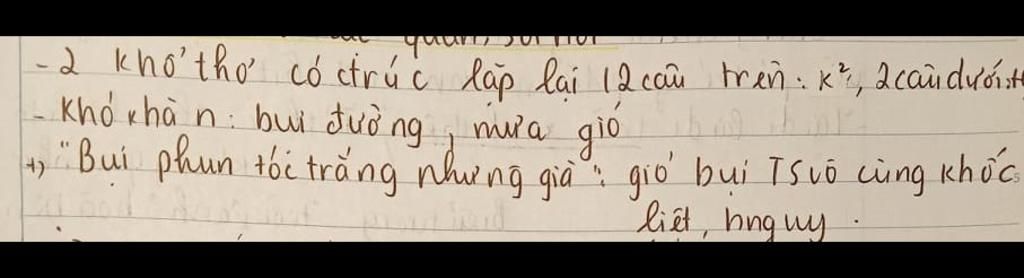 - 2 khổ thơ có ctrúc lặp lại (2 câu trên: k², 2 câu dưới:
- Khó khăn: bụi đường, mưa gió
+, "Bụi phun tóc trắng như ng già": gió bụi TS vô cùng khốc
liệt, hng uy.